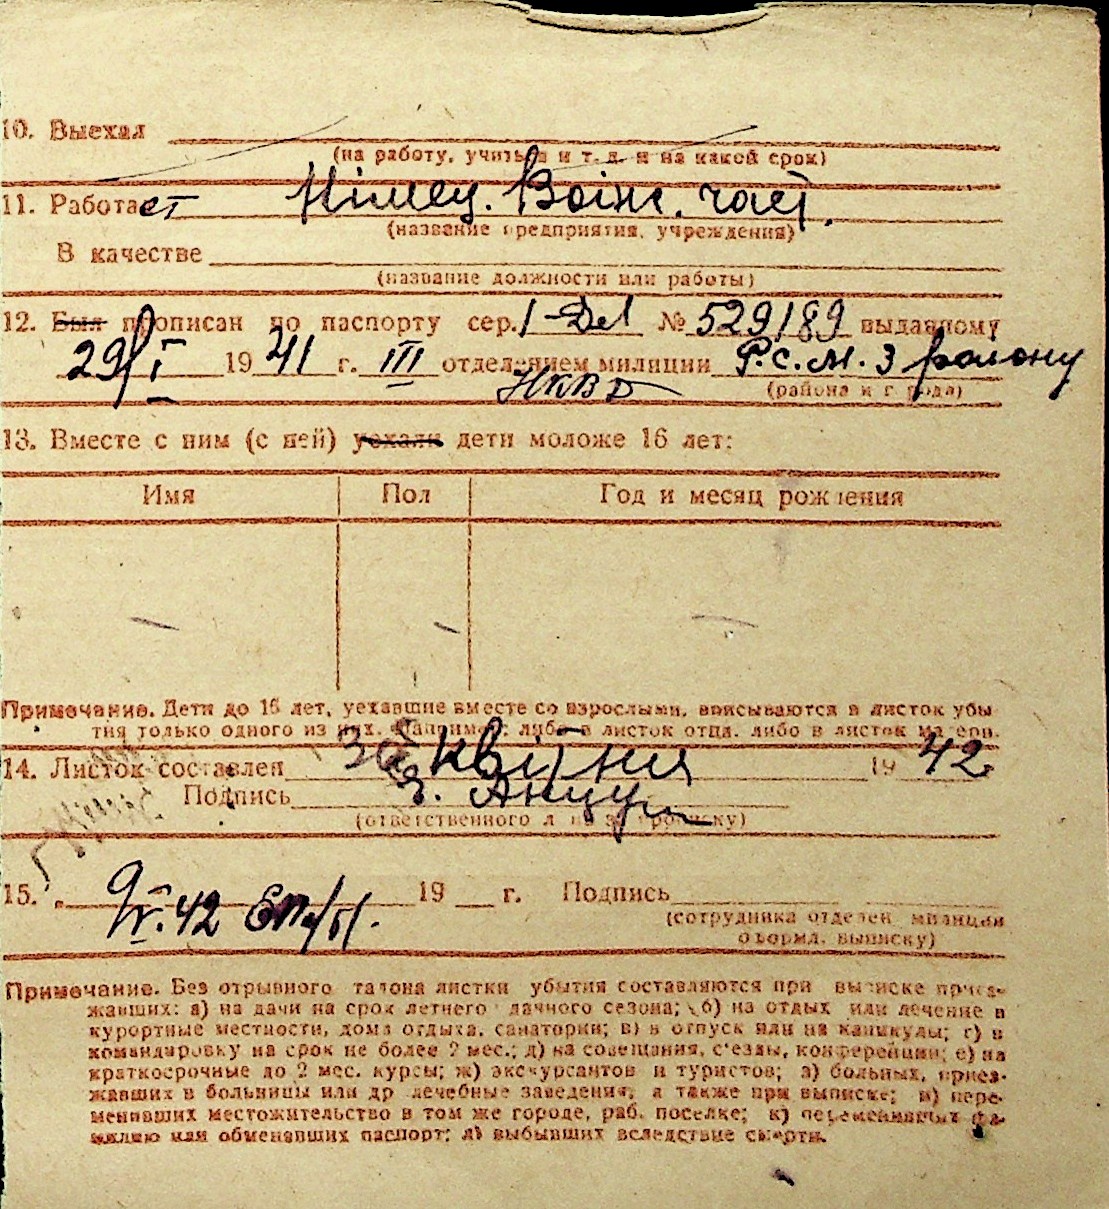 10. Выехал
(на работу, учиться и т. д. и на какой срок)
11. Работает Німец. Воінс. част.
(название предприятия, учреждения)
В качестве
(название должности или работы)
12. Был прописан по паспорту сер. № 529189 выданному
29/I 1941 г. III отделением милиции Р.С.М. 3 району
НКВД (района и города)
13. Вместе с ним (с ней) уехали дети моложе 16 лет:
Имя Пол Год и месяц рождения
Примечание. Дети до 16 лет, уехавшие вместе со взрослыми, вписываются в листок убы
тия только одного из них. Например: либо в листок отца, либо в листок матери.
14. Листок составлен 30 квітня 1942
Подпись
(ответственного л на за прописку)
15. 9/IV.42 19 г. Подпись
(сотрудника отделен. милиции
оформл. выписку)
Примечание. Без отрывного талона листки убытия составляются при выписке приез-
жавших: а) на дачи на срок летнего дачного сезона; б) на отдых или лечение в
курортные местности, дома отдыха, санатории; в) в отпуск или на каникулы; г) в
командировку на срок не более 2 мес.; д) на совещания, с'езды, конференции; е) на
краткосрочные до 2 мес. курсы; ж) экскурсантов и туристов; з) больных, приез-
жавших в больницы или др лечебные заведения, а также при выписке; и) пере-
менивших местожительство в том же городе, раб. поселке; к) переменивших фа-
милию или обменявших паспорт; л) выбывших вследствие смерти.